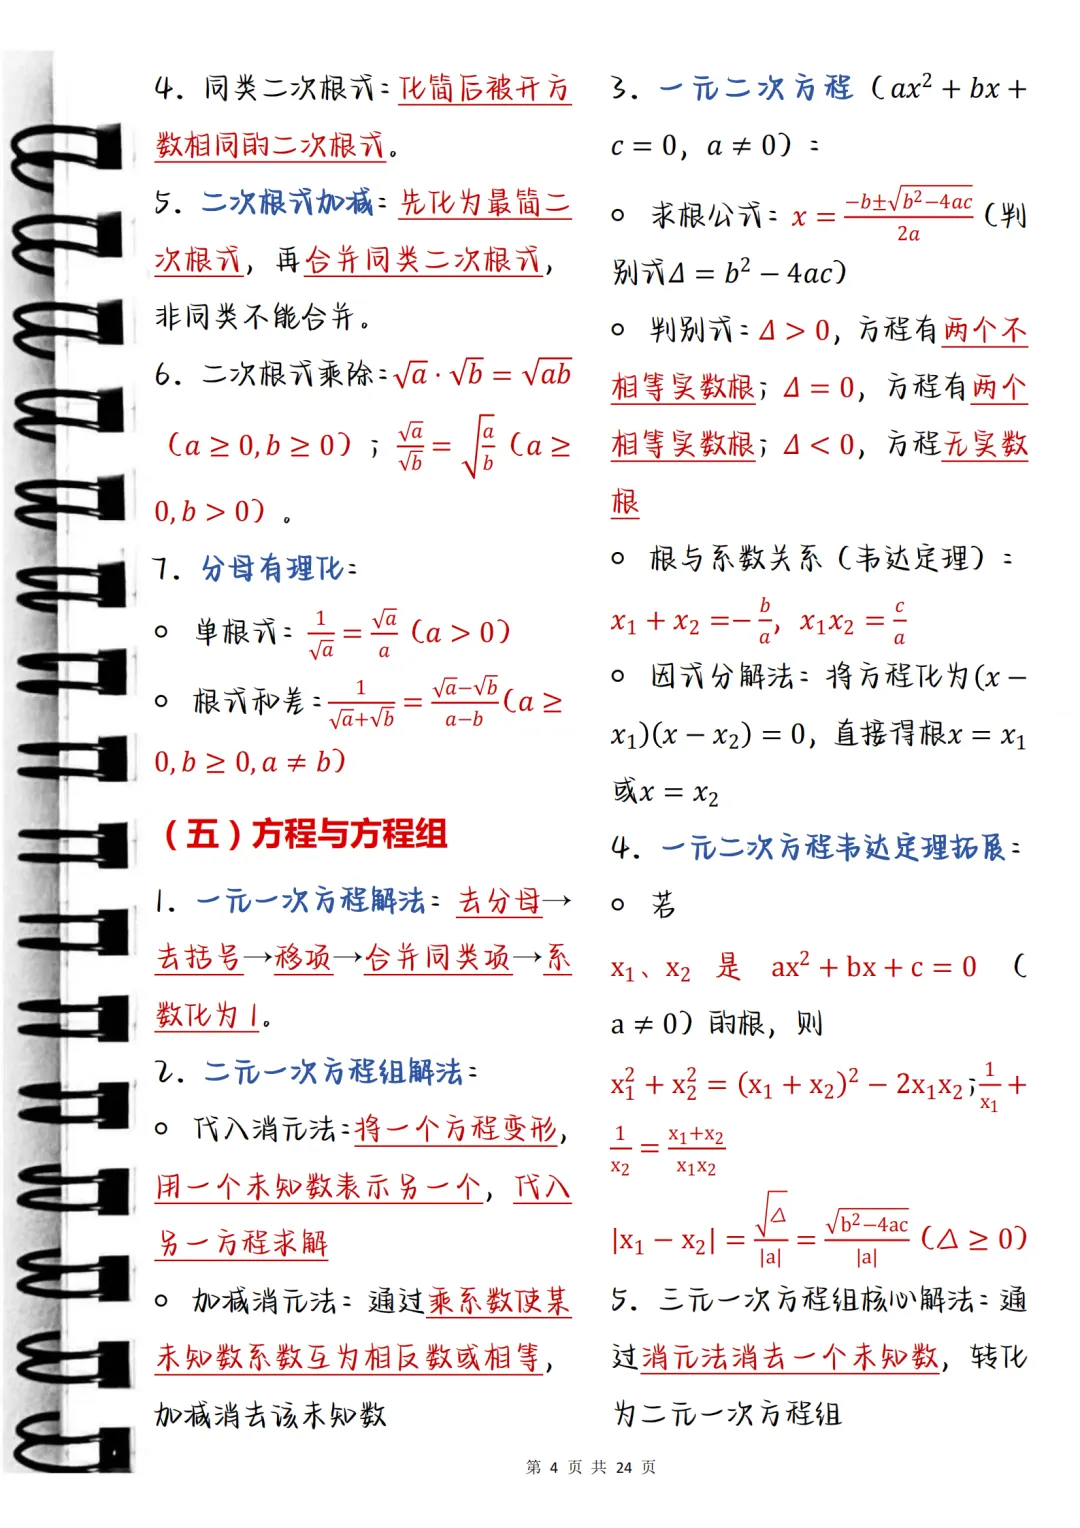 4. 同类二次根式：化简后被开方
数相同的二次根式。
5. 二次根式加减：先化为最简二
次根式，再合并同类二次根式，
非同类不能合并。
6. 二次根式乘除：√a · √b = √ab
（a ≥ 0, b ≥ 0）；√a/√b = √(a/b)（a ≥
0, b > 0）。
7. 分母有理化：
○ 单根式：1/√a = √a/a（a > 0）
○ 根式和差：1/(√a+√b) = (√a−√b)/(a−b)（a ≥
0, b ≥ 0, a ≠ b）
（五）方程与方程组
1. 一元一次方程解法：去分母→
去括号→移项→合并同类项→系
数化为1。
2. 二元一次方程组解法：
○ 代入消元法：将一个方程变形，
用一个未知数表示另一个，代入
另一方程求解
○ 加减消元法：通过乘系数使某
未知数系数互为相反数或相等，
加减消去该未知数
3. 一元二次方程（ax² + bx +
c = 0，a ≠ 0）：
○ 求根公式：x = (−b±√(b²−4ac))/2a（判
别式Δ = b² − 4ac）
○ 判别式：Δ > 0，方程有两个不
相等实数根；Δ = 0，方程有两个
相等实数根；Δ < 0，方程无实数
根
○ 根与系数关系（韦达定理）：
x₁ + x₂ =− b/a，x₁x₂ = c/a
○ 因式分解法：将方程化为(x −
x₁)(x − x₂) = 0，直接得根x = x₁
或x = x₂
4. 一元二次方程韦达定理拓展：
○ 若
x₁、x₂ 是 ax² + bx + c = 0 （
a ≠ 0）的根，则
x₁² + x₂² = (x₁ + x₂)² − 2x₁x₂；1/x₁ +
1/x₂ = (x₁+x₂)/(x₁x₂)
|x₁ − x₂| = √△/|a| = √(b²−4ac)/|a|（△ ≥ 0）
5. 三元一次方程组核心解法：通
过消元法消去一个未知数，转化
为二元一次方程组
第 4 页 共 24 页